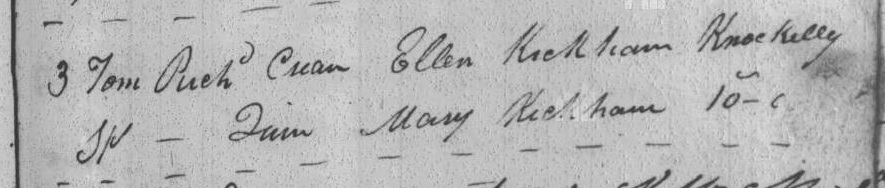 3 Tom Rich^d Crean Ellen Kickham Knockelly
Sp — Jim Mary Kickham 10 – c